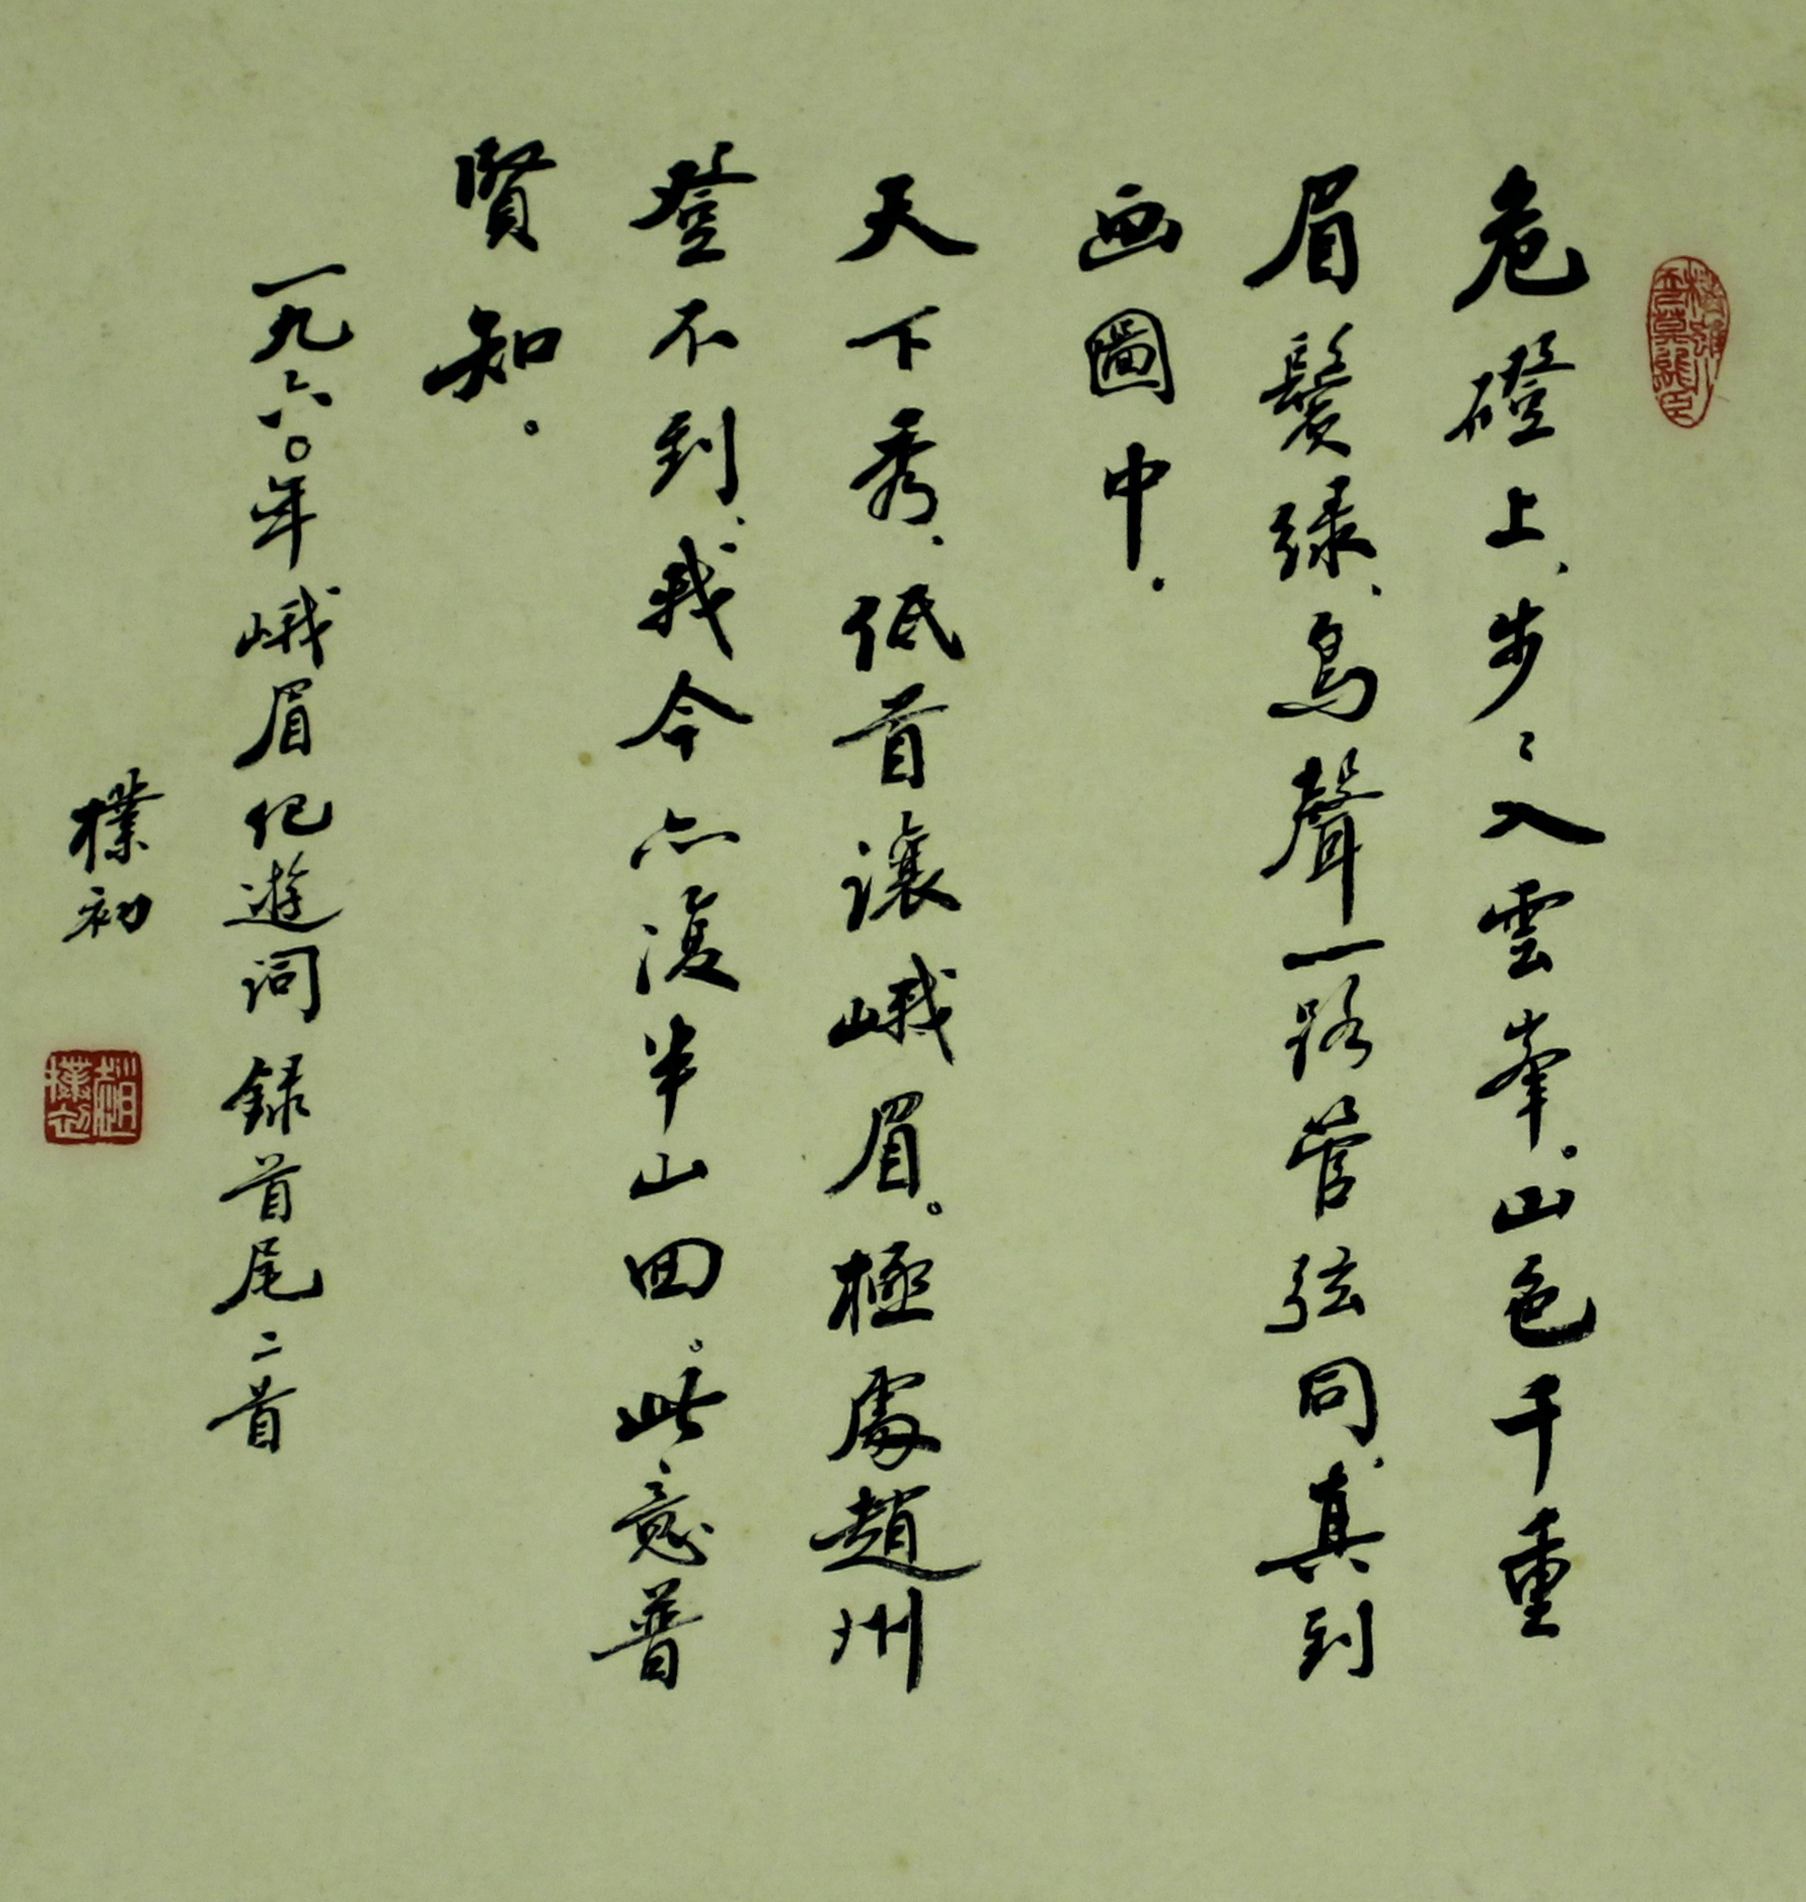 危磴上、步々入雲峯。山色千重
眉鬓绿、鳥聲一路管弦同、真到
画圖中。
天下秀、低首讓峨眉。極處趙州
登不到、我今亦復半山回。此意普
賢知。
一九六〇年峨眉纪遊词 録首尾二首
樸初
趙樸初